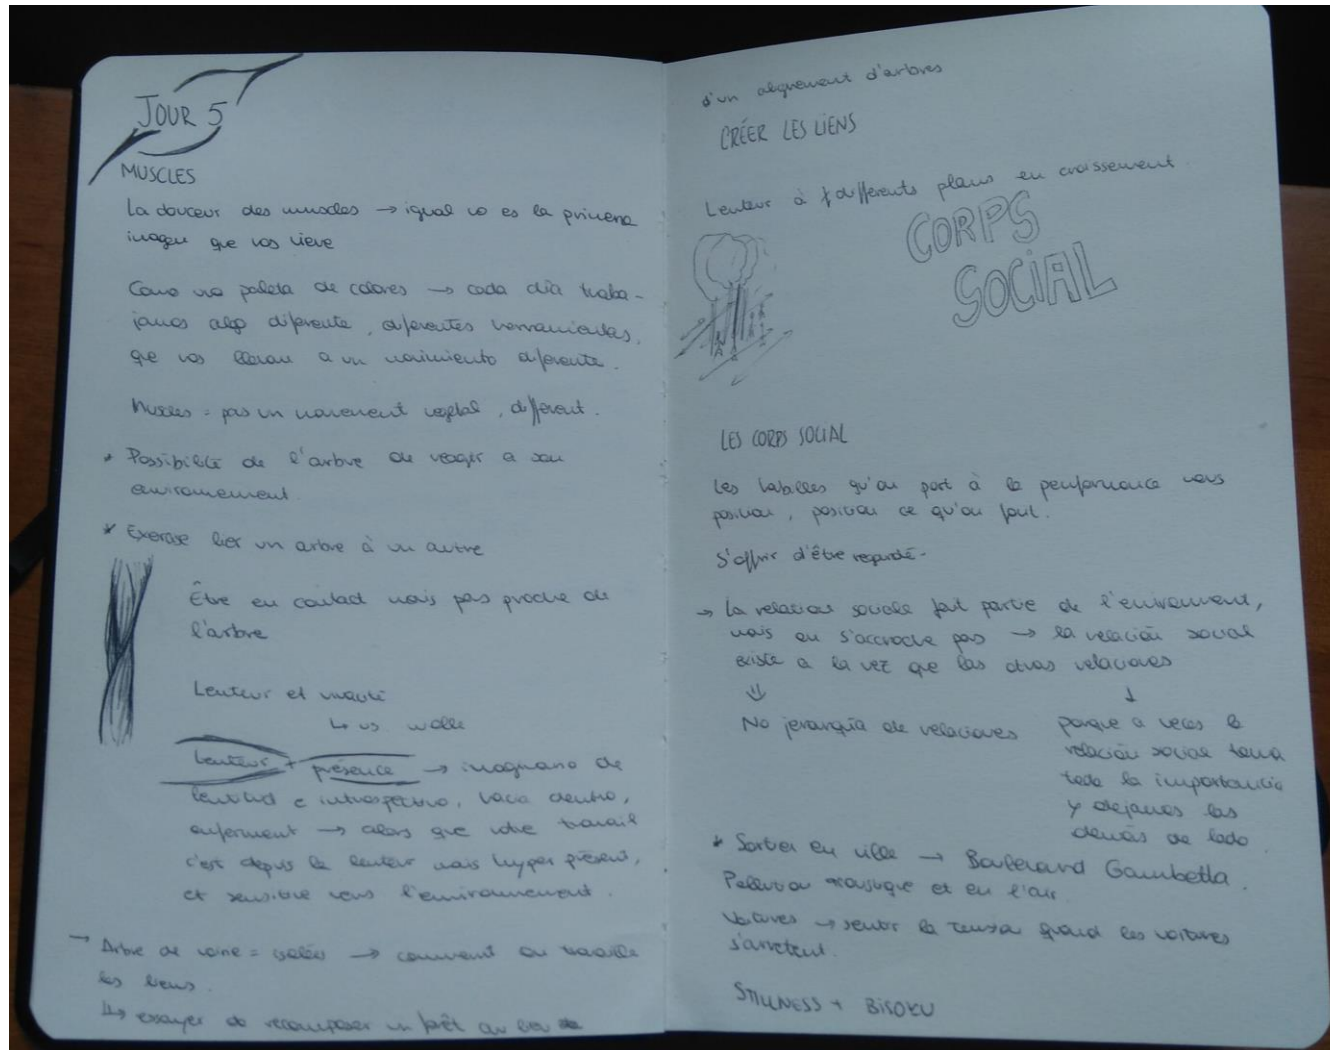 JOUR 5
MUSCLES
La douceur des muscles → igual no es la primera
imagen que nos viene
Como una paleta de colores → cada día traba-
jamos algo diferente, diferentes herramientas,
que nos llevan a un movimiento diferente.
Muscles = pas un mouvement vegetal, different.
* Possibilité de l'arbre de reagir a son
environnement.
* Exercise lier un arbre à un autre
Être en contact mais pas proche de
l'arbre
Lenteur et
↳ vs.
Lenteur + présence → imaginario de
lentitud e introspectivo, hacia dentro,
enferment → alors que votre travail
c'est depuis la lenteur mais hyper présent,
et sensible vers l'environnement.
→ Arbre de = isolés → comment on travaille
les liens.
↳ essayer de recomposer un forêt au lieu de
d'un alignement d'arbres
CRÉER LES LIENS
Lenteur à differents plans en croissement.
CORPS
SOCIAL
LES CORPS SOCIAL
Les habilles qu'on port à la performance nous
position, position ce qu'on fait.
S'offrir d'être regardé-
→ La relation sociale fait partie de l'environment,
mais on s'accroche pas → la relación social
existe a la vez que las otras relaciones
⇓ ↓
No jerarquía de relaciones
porque a veces la
relación social toma
toda la importancia
y dejamos las
demás de lado.
* Sortir en ville → Boulevard Gambetta.
Pollution et en l'air.
Voitures → sentir la tension quand les voitures
s'arretent.
STILLNESS + BISOKU